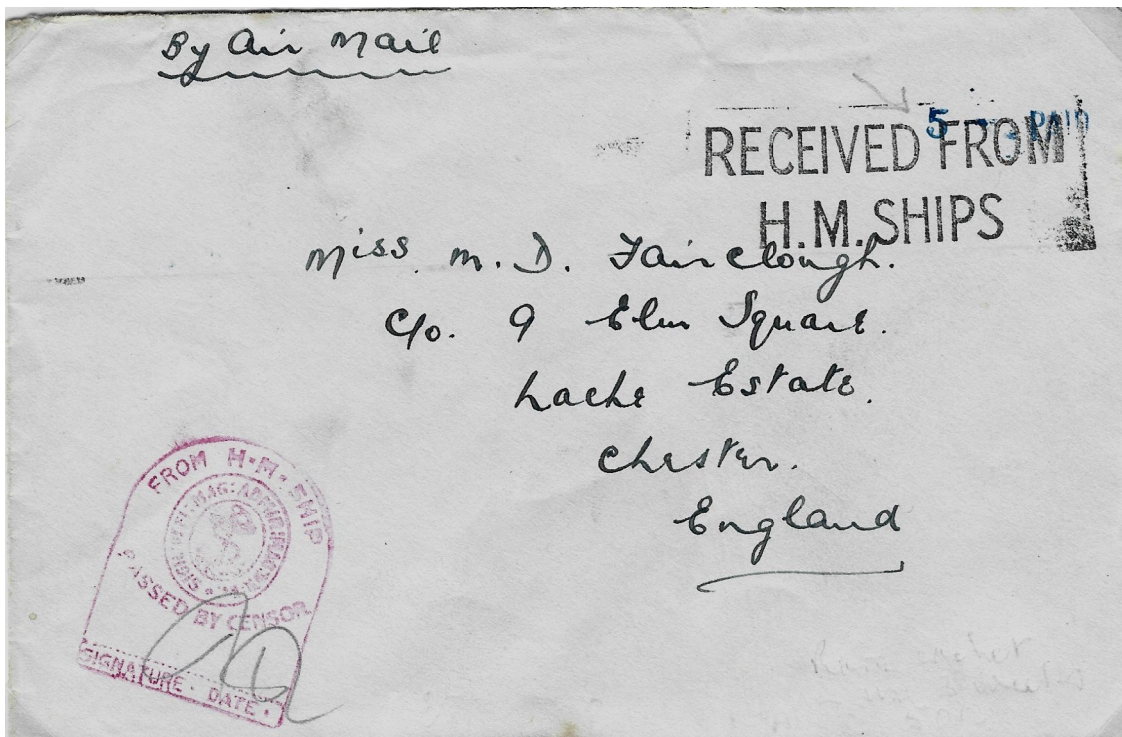 By Air Mail
5 PAID
RECEIVED FROM
H.M. SHIPS
Miss. M. D. Fairclough.
C/o. 9 Elm Square.
Lache Estate.
Chester.
England
FROM H·M·SHIP
PASSED BY CENSOR.
SIGNATURE · DATE ·